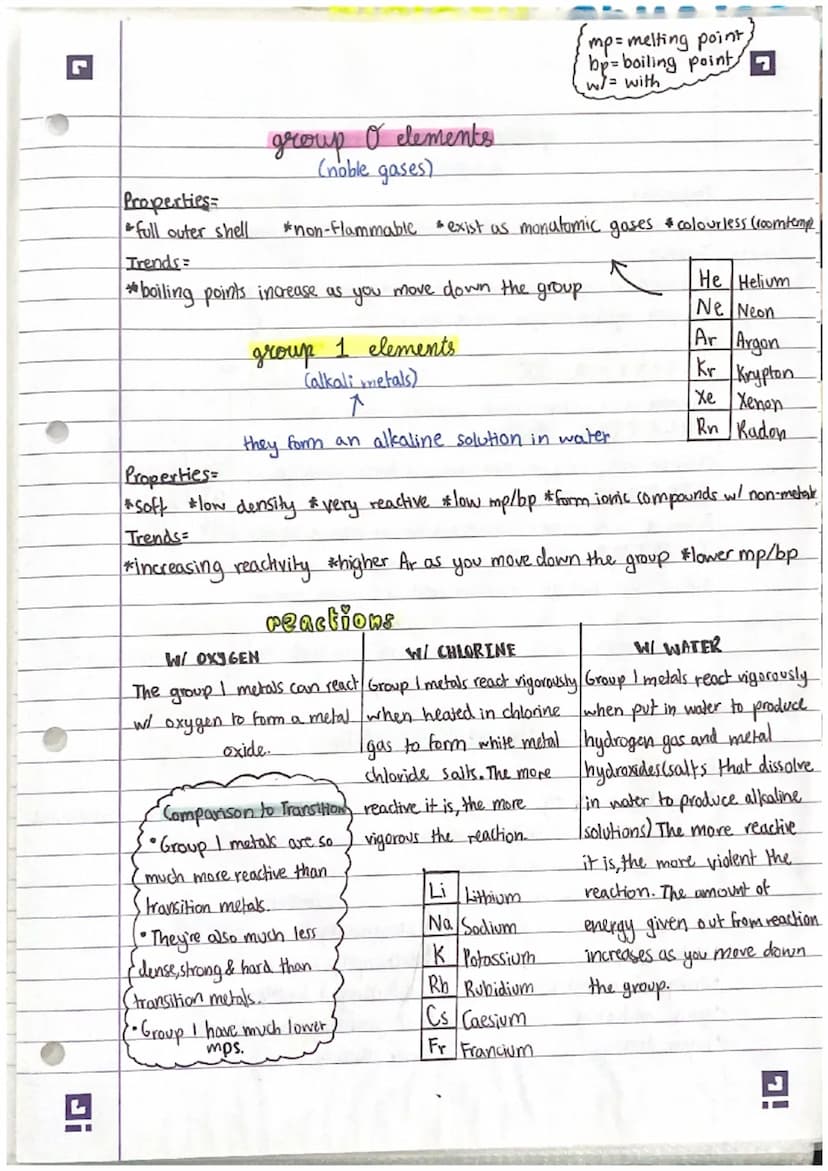 mp=melting point
bp=boiling point
w/= with
group 0 elements
(noble gases)
Properties=
*full outer shell *non-flammable *exist as monatomic gases *colourless (roomtemp
Trends=
*boiling points increase as you move down the group
He Helium
Ne Neon
Ar Argon
Kr Krypton
Xe Xenon
Rn Radon
group 1 elements
(alkali metals)
they form an alkaline solution in water
Properties=
*soft *low density *very reactive *low mp/bp *form ionic compounds w/ non-metals
Trends=
*increasing reactivity *higher Ar as you move down the group *lower mp/bp
reactions
W/ OXYGEN
The group 1 metals can react
w/ oxygen to form a metal
oxide.
W/ CHLORINE
Group 1 metals react vigorously
when heated in chlorine
gas to form white metal
chloride salts. The more
reactive it is, the more
vigorous the reaction.
W/ WATER
Group 1 metals react vigorously
when put in water to produce
hydrogen gas and metal
hydroxides(salts that dissolve
in water to produce alkaline
solutions) The more reactive
it is, the more violent the
reaction. The amount of
energy given out from reaction
increases as you move down
the group.
Comparison to Transition
• Group 1 metals are so
much more reactive than
transition metals.
• They're also much less
dense, strong & hard than
transition metals.
• Group 1 have much lower
mps.
Li Lithium
Na Sodium
K Potassium
Rb Rubidium
Cs Caesium
Fr Francium